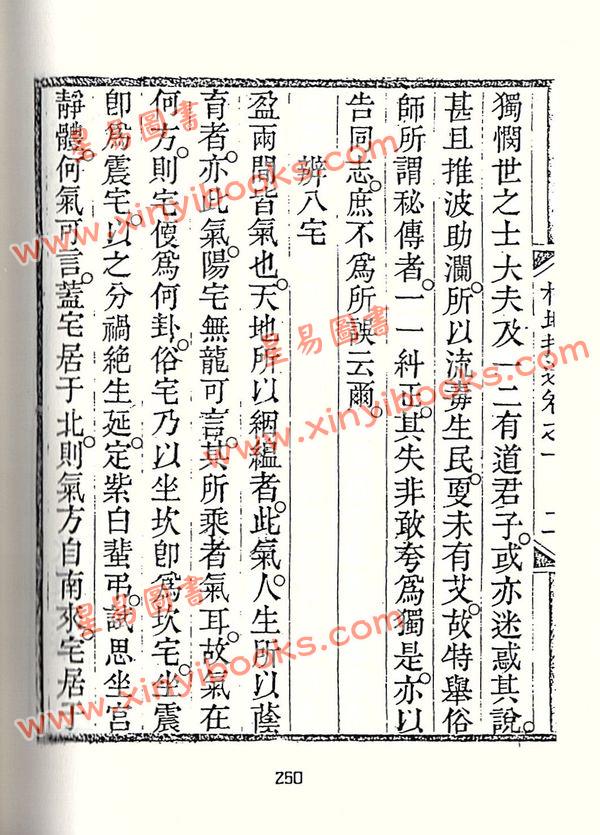 卷之一　二
獨憫世之士大夫及一二有道君子。或亦迷惑其說。
甚且推波助瀾。所以流毒生民。更未有艾。故特舉俗
師所謂秘傳者。一一糾正。其失非敢夸爲獨是。亦以
告同志。庶不爲所誤云爾。
辨八宅
盈兩間皆氣也。天地所以絪縕者。此氣。人生所以蔭
育者。亦此氣。陽宅無龍可言。其所乘者氣耳。故氣在
何方。則宅便爲何卦。俗宅乃以坐坎卽爲坎宅。坐震
卽爲震宅。以之分禍絶生延。定紫白蜚弔。試思坐宮
靜體。何氣可言。蓋宅居于北。則氣方自南來。宅居于
250
星易圖書
www.xinyibooks.com
星易圖書
www.xinyibooks.com
星易圖書
www.xinyibooks.com
星易圖書
www.xinyibooks.com